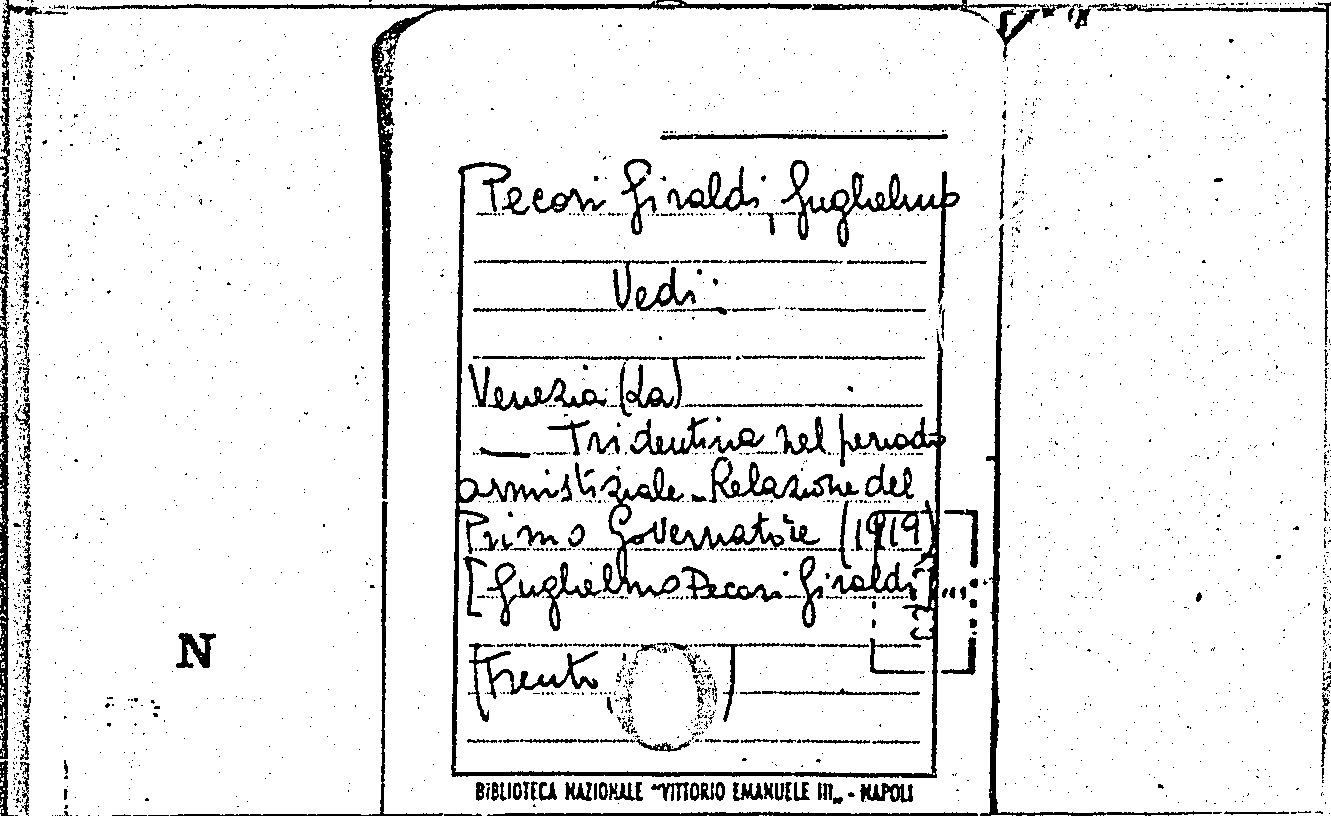 Pecori Giraldi, Guglielmo
Vedi:
Venezia (La)
— Tridentina nel periodo
armistiziale - Relazione del
Primo Governatore (1919)
[Guglielmo Pecori Giraldi] ...
(Trento, )
N
BIBLIOTECA NAZIONALE "VITTORIO EMANUELE III„ - NAPOLI